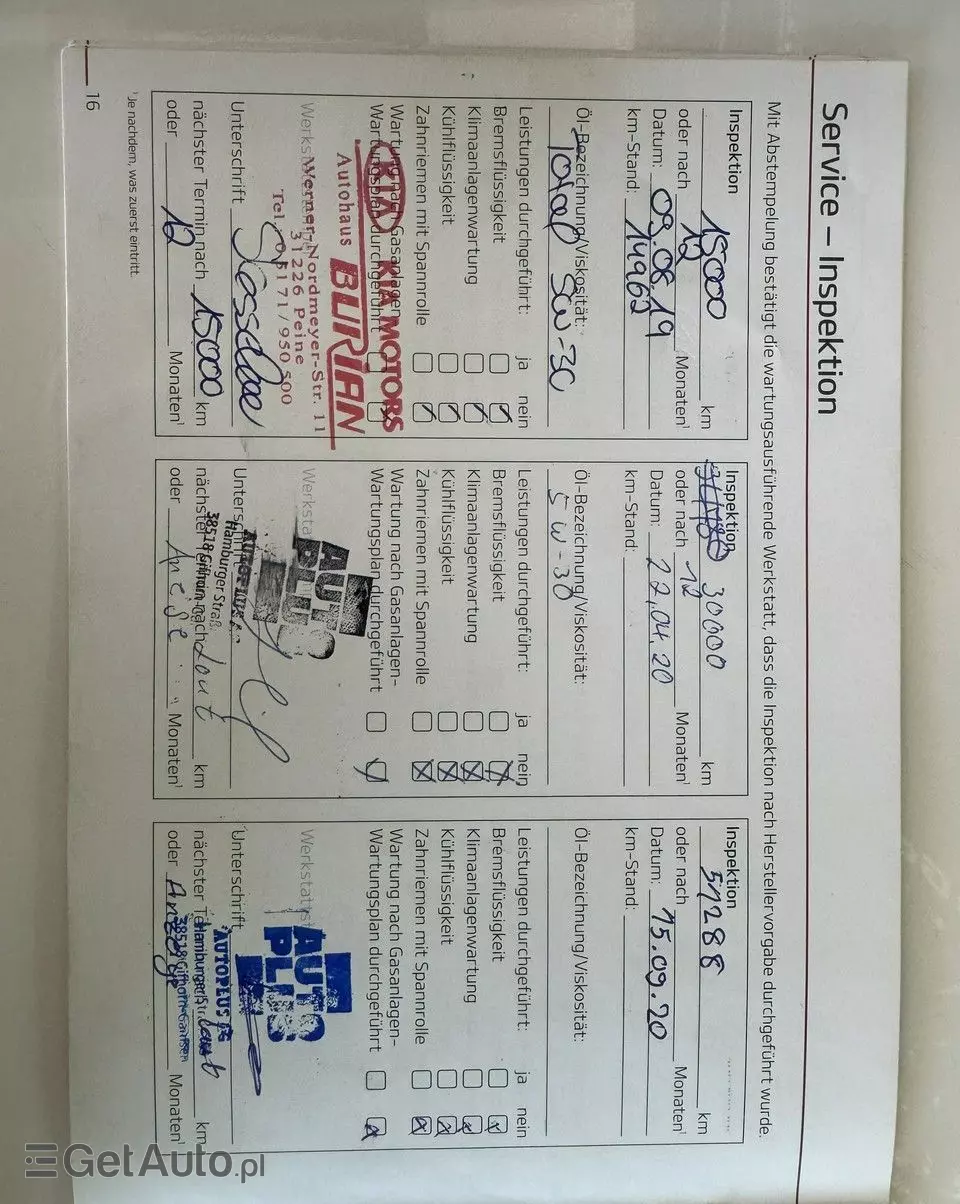 Service – Inspektion
Mit Abstempelung bestätigt die wartungsausführende Werkstatt, dass die Inspektion nach Herstellervorgabe durchgeführt wurde.
Inspektion
15000 km
oder nach 12 Monaten¹
Datum: 09.08.19
km-Stand: 14962
Öl-Bezeichnung/Viskosität:
Total 5W-30
Leistungen durchgeführt: ja nein
Bremsflüssigkeit
Klimaanlagenwartung
Kühlflüssigkeit
Zahnriemen mit Spannrolle
Wartung nach Gasanlagen-
Wartungsplan durchgeführt
KIA KIA MOTORS
Autohaus BURIAN
Werner-Nordmeyer-Str. 11
31226 Peine
Tel. 05171/950 500
Unterschrift
nächster Termin nach 15000 km
oder 12 Monaten¹
Inspektion
30000 km
oder nach 12 Monaten¹
Datum: 22.04.20
km-Stand:
Öl-Bezeichnung/Viskosität:
5W-30
Leistungen durchgeführt: ja nein
Bremsflüssigkeit
Klimaanlagenwartung
Kühlflüssigkeit
Zahnriemen mit Spannrolle
Wartung nach Gasanlagen-
Wartungsplan durchgeführt
AUTO
PLUS
Hamburger Straß
38518 Gifhorn
nächster Termin nach laut km
oder Monaten¹
Inspektion
51288 km
oder nach Monaten¹
Datum: 15.09.20
km-Stand:
Öl-Bezeichnung/Viskosität:
Leistungen durchgeführt: ja nein
Bremsflüssigkeit
Klimaanlagenwartung
Kühlflüssigkeit
Zahnriemen mit Spannrolle
Wartung nach Gasanlagen-
Wartungsplan durchgeführt
Werkstattst
AUTO
PLUS
Unterschrift
Hamburger Str.
38518 Gifhorn-Gamsen
nächster Termin laut km
oder Anzeige Monaten¹
¹Je nachdem, was zuerst eintritt.
16
GetAuto.pl